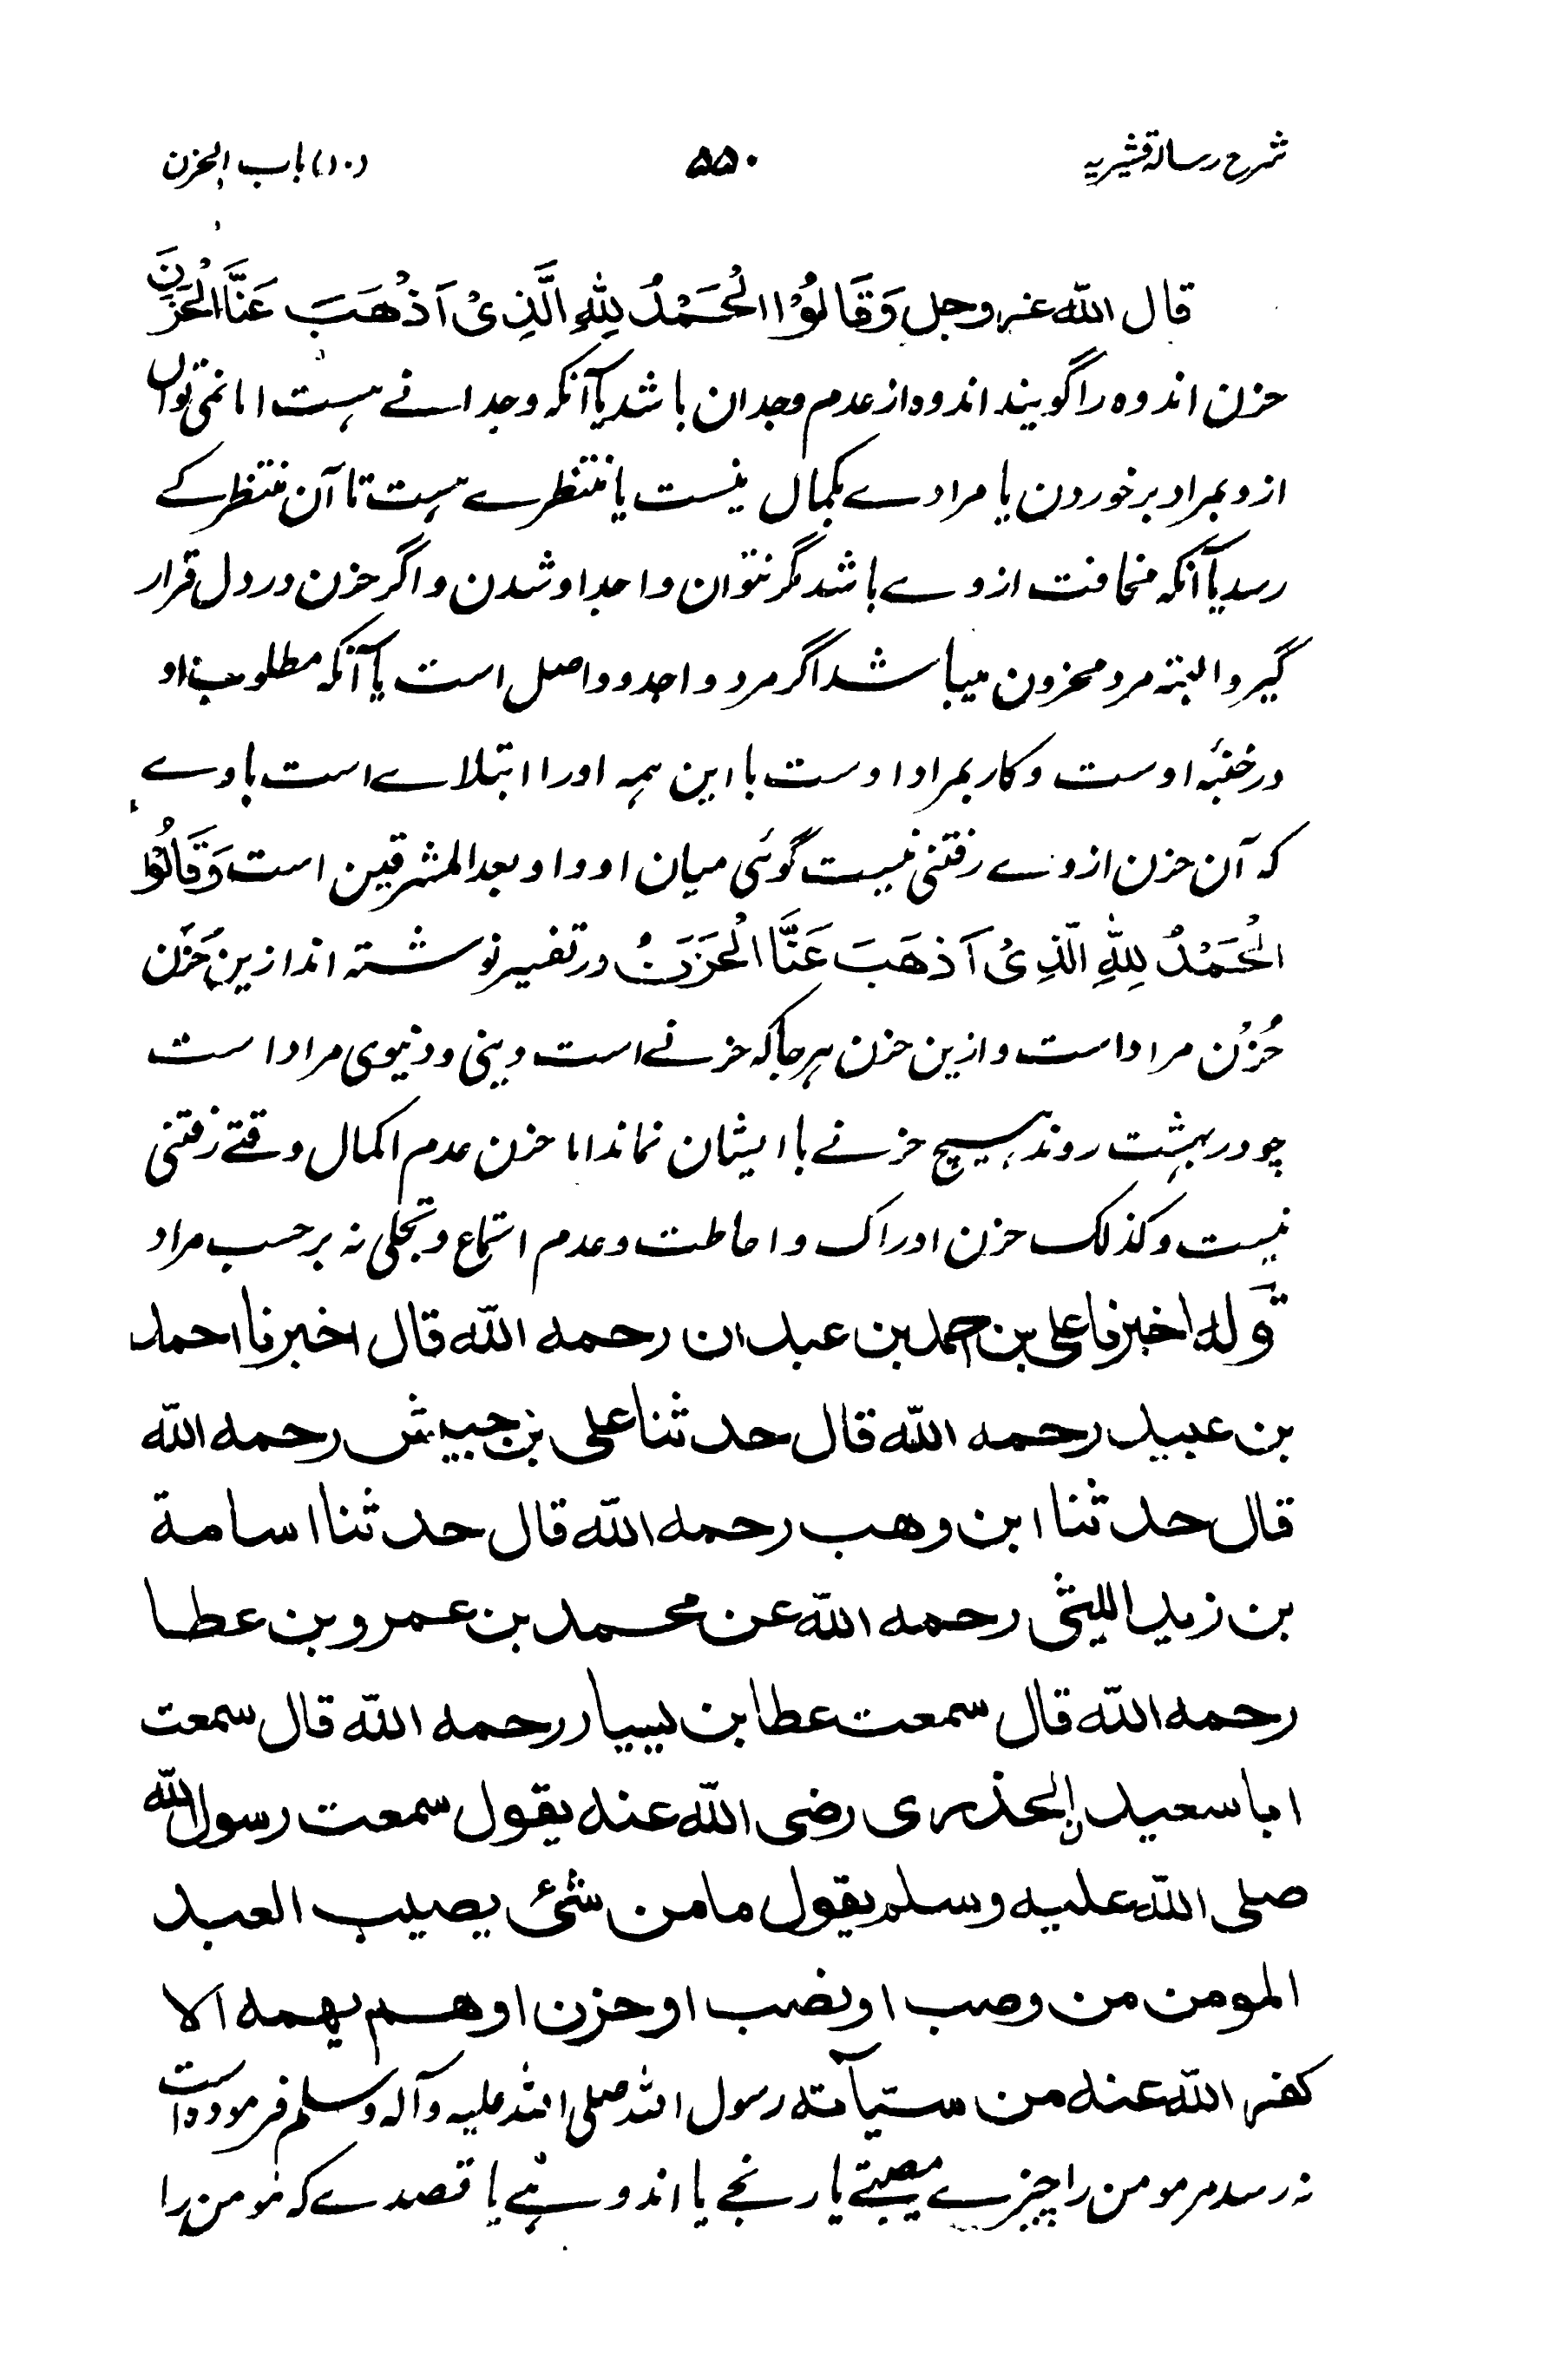 شرح رسالة قشیریہ ۵۵۰ (۱۰) باب الحزن
قال الله عز وجل وَقَالُوْا الْحَمْدُ لِلّٰهِ الَّذِیْ اَذْهَبَ عَنَّا الْحَزَنَ
حزن اندوه را گویند اندوه از عدم وجدان باشد یا آنکه وجدانے ہست اما نمی تواں
ازو بمراد برخوردن یا مرادے بکمال نیست یا منتظرے ہست تا آن منتظر کے
رسد یا آنکه مخافت ازوے باشد مگر نتوان واجد او شدن و اگر حزن در دل قرار
گیرد البته مرد محزون میباشد اگر مرد واجد و واصل است یا آنکه مطلوب او
در خفیۂ اوست و کار بمراد اوست با این ہمہ او را ابتلاے است باوے
کہ آن حزن ازوے رفتنی نیست گوئی میان او و او بعد المشرقین است وَقَالُوْا
الْحَمْدُ لِلّٰهِ الَّذِیْ اَذْهَبَ عَنَّا الْحَزَنَ در تفسیر نوشته اند ازین حَزَن
حُزْن مراد است و ازین حزن ہرجا کہ حزنے است دینی و دنیوی مراد است
چو در بہشت روند ہیچ حزنے با ایشان نماند اما حزن عدم اکمال وقتے رفتنی
نیست و کذلک حزن ادراک و احاطت و عدم استماع و تجلی نہ بر حسب مراد
قوله اخبرنا علی بن احمد بن عبدان رحمه الله قال اخبرنا احمد
بن عبید رحمه الله قال حدثنا علی بن حبیش رحمه الله
قال حدثنا ابن وهب رحمه الله قال حدثنا اسامة
بن زید اللیثی رحمه الله عن محمد بن عمرو بن عطا
رحمه الله قال سمعت عطا بن یسار رحمه الله قال سمعت
ابا سعید ن الخدری رضی الله عنه یقول سمعت رسول الله
صلی الله علیه وسلم یقول ما من شئ یصیب العبد
المومن من وصب او نصب او حزن او هم یهمه الا
کفر الله عنه من سیآته رسول الله صلی الله علیه وآله وسلم فرموده است
نہ رسد مر مومن را چیزے مصیبتے یا رنجے یا اندوہے یا قصدے کہ مومن را